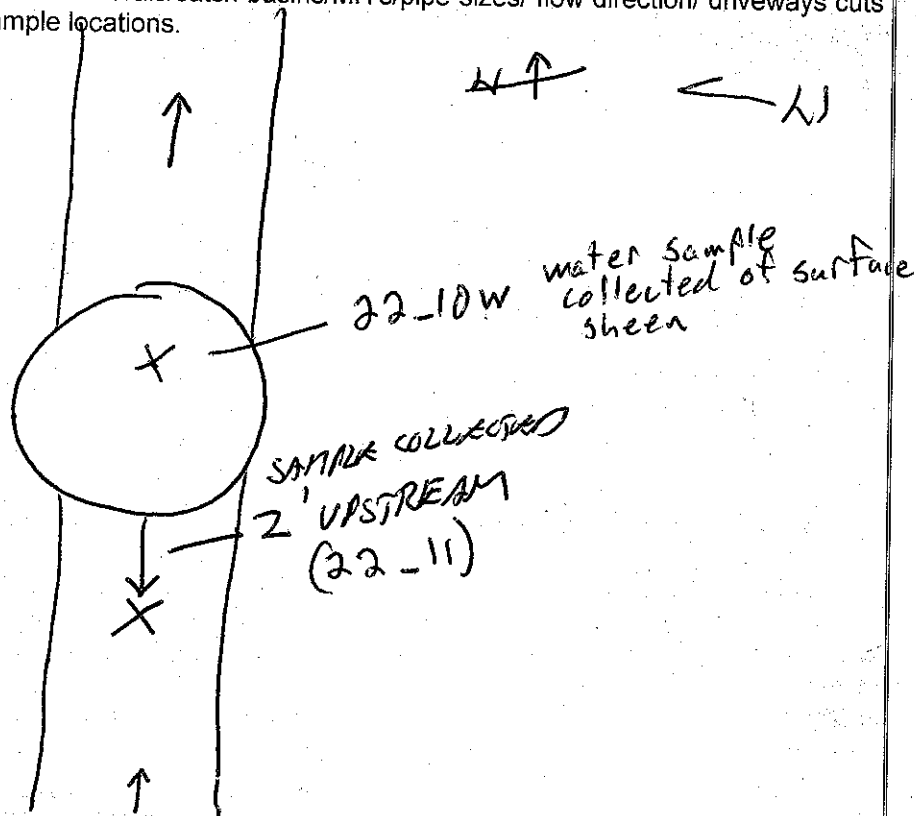 catch basins/MH's/pipe sizes/ flow direction/ driveways cuts
ample locations.
N
N
22_10W water sample
collected of surface
sheen
SAMPLE COLLECTED
2' UPSTREAM
(22_11)